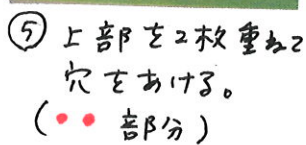 ⑤ 上部を2枚重ねて
穴をあける。
(●● 部分)